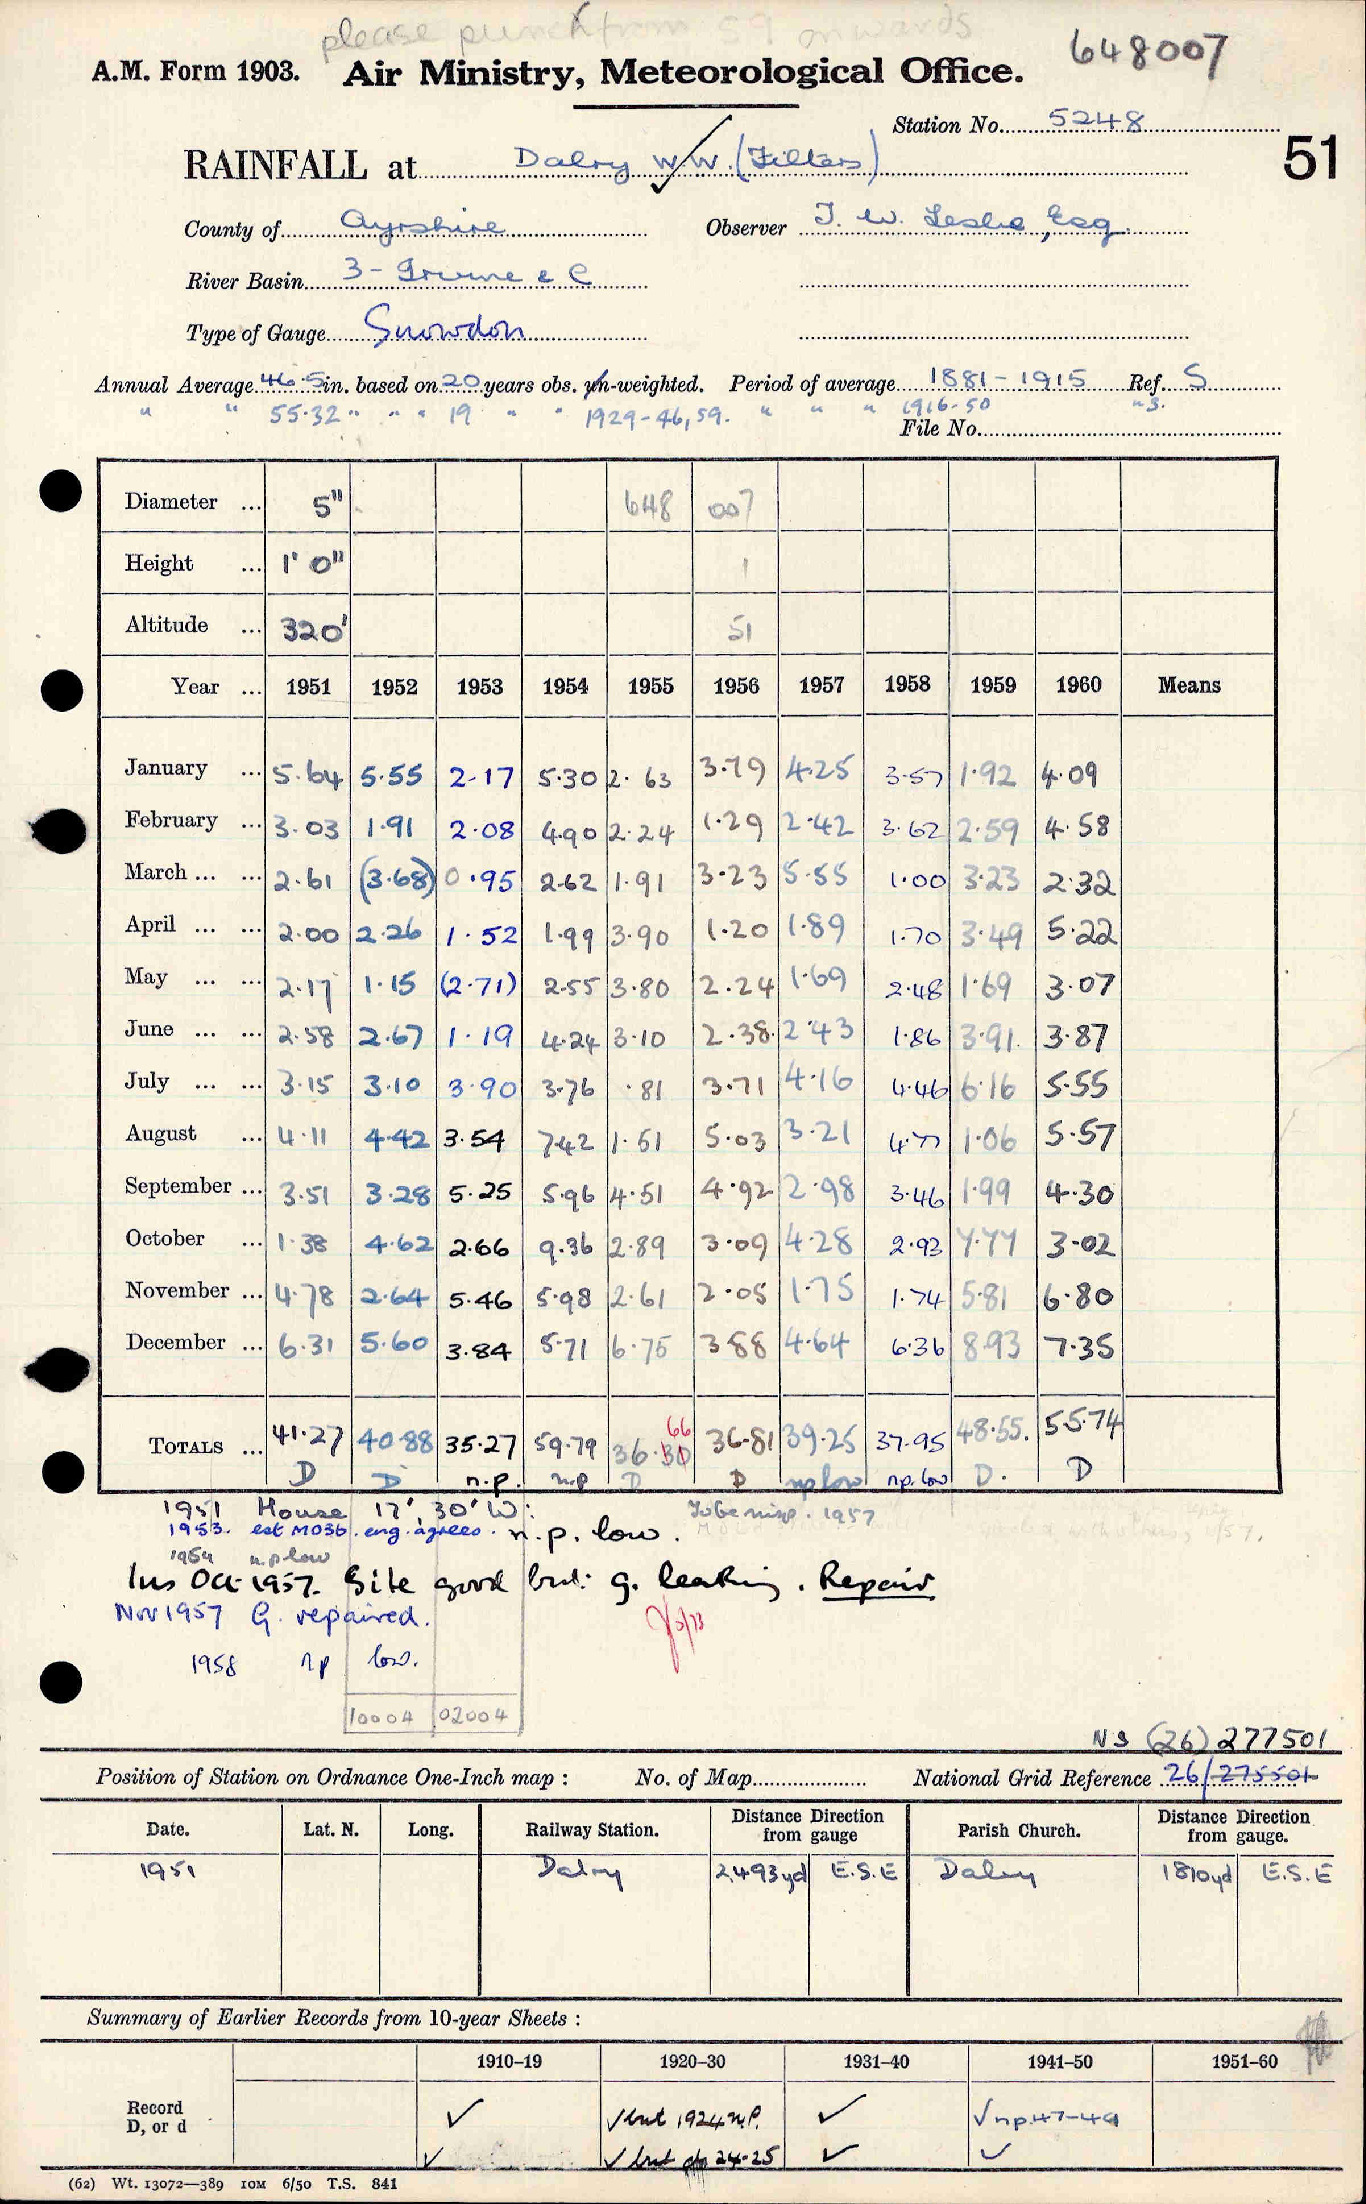 please punch from 59 onwards
648007
A.M. Form 1903. Air Ministry, Meteorological Office.
Station No. 5248
51
RAINFALL at Dalry W.W. (Filters)
County of Ayrshire Observer J. W. Leslie, Esq.
River Basin 3 - Irvine & C
Type of Gauge Snowdon
Annual Average 46.5 in. based on 20 years obs. un-weighted. Period of average 1881-1915 Ref. S
" " 55.32 " " " 19 " " 1929-46, 59. " " " 1916-50 " S.
File No.
Diameter ... 5" 648 007
Height ... 1' 0" 1
Altitude ... 320' 51
Year ... 1951 1952 1953 1954 1955 1956 1957 1958 1959 1960 Means
January ... 5.64 5.55 2.17 5.30 2.63 3.79 4.25 3.57 1.92 4.09
February ... 3.03 1.91 2.08 4.90 2.24 1.29 2.42 3.62 2.59 4.58
March ... ... 2.61 (3.68) 0.95 2.62 1.91 3.23 5.55 1.00 3.23 2.32
April ... ... 2.00 2.26 1.52 1.99 3.90 1.20 1.89 1.70 3.49 5.22
May ... ... 2.17 1.15 (2.71) 2.55 3.80 2.24 1.69 2.48 1.69 3.07
June ... ... 2.58 2.67 1.19 4.24 3.10 2.38 2.43 1.86 3.91 3.87
July ... ... 3.15 3.10 3.90 3.76 .81 3.71 4.16 4.46 6.16 5.55
August ... 4.11 4.42 3.54 7.42 1.51 5.03 3.21 4.77 1.06 5.57
September ... 3.51 3.28 5.25 5.96 4.51 4.92 2.98 3.46 1.99 4.30
October ... 1.38 4.62 2.66 9.36 2.89 3.09 4.28 2.93 7.77 3.02
November ... 4.78 2.64 5.46 5.98 2.61 2.05 1.75 1.74 5.81 6.80
December ... 6.31 5.60 3.84 5.71 6.75 3.88 4.64 6.36 8.93 7.35
66
TOTALS ... 41.27 40.88 35.27 59.79 36.30 36.81 39.25 37.95 48.55. 55.74
D D n.p. n.p D D np low np. low D. D
1951 House 17', 30' W: To be insp. 1957
1953. est MO3b. eng. agrees. n.p. low.
1954 n.p low
Ins Oct 1957. Site good but g. leaking. Repair
Nov 1957 G. repaired.
1958 np low.
10004 02004
NS (26) 277501
Position of Station on Ordnance One-Inch map : No. of Map National Grid Reference 26/275501
Date. Lat. N. Long. Railway Station. Distance Direction from gauge Parish Church. Distance Direction from gauge.
1951 Dalry 2493yd E.S.E Dalry 1810yd E.S.E
Summary of Earlier Records from 10-year Sheets :
1910–19 1920–30 1931–40 1941–50 1951–60
Record ✓ ✓ but 1924 n.p. ✓ ✓ np.47-49
D, or d ✓ ✓ but do 24-25 ✓ ✓
(62) Wt. 13072—389 10M 6/50 T.S. 841